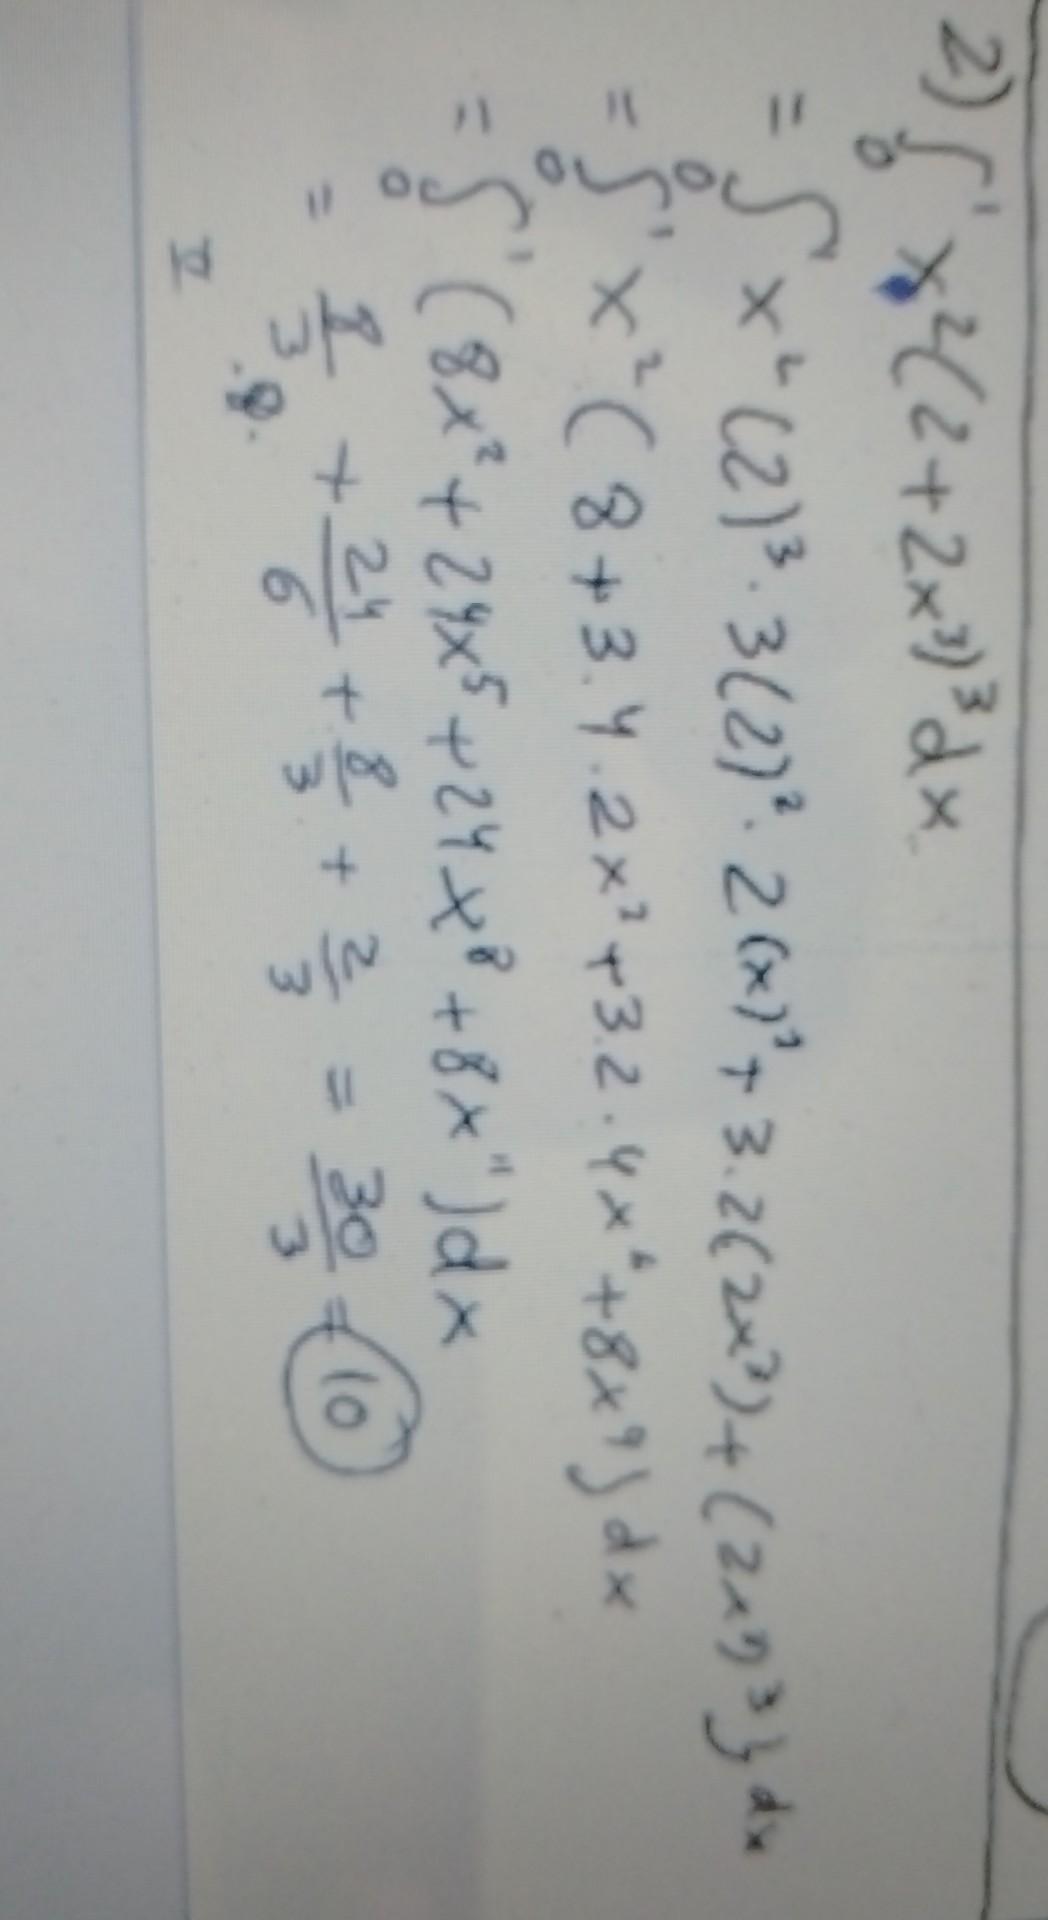 2) ₀∫¹ x²(2+2x³)³dx
= ₀∫¹ x²(2)³.3(2)².2(x)³+3.2(2x³)+(2x³)³}dx
= ₀∫¹ x²(8+3.4.2x³+3.2.4x⁶+8x⁹}dx
= ₀∫¹ (8x²+24x⁵+24x⁸+8x¹¹)dx
= 8/3 + 24/6 + 8/3 + 2/3 = 30/3 = 10